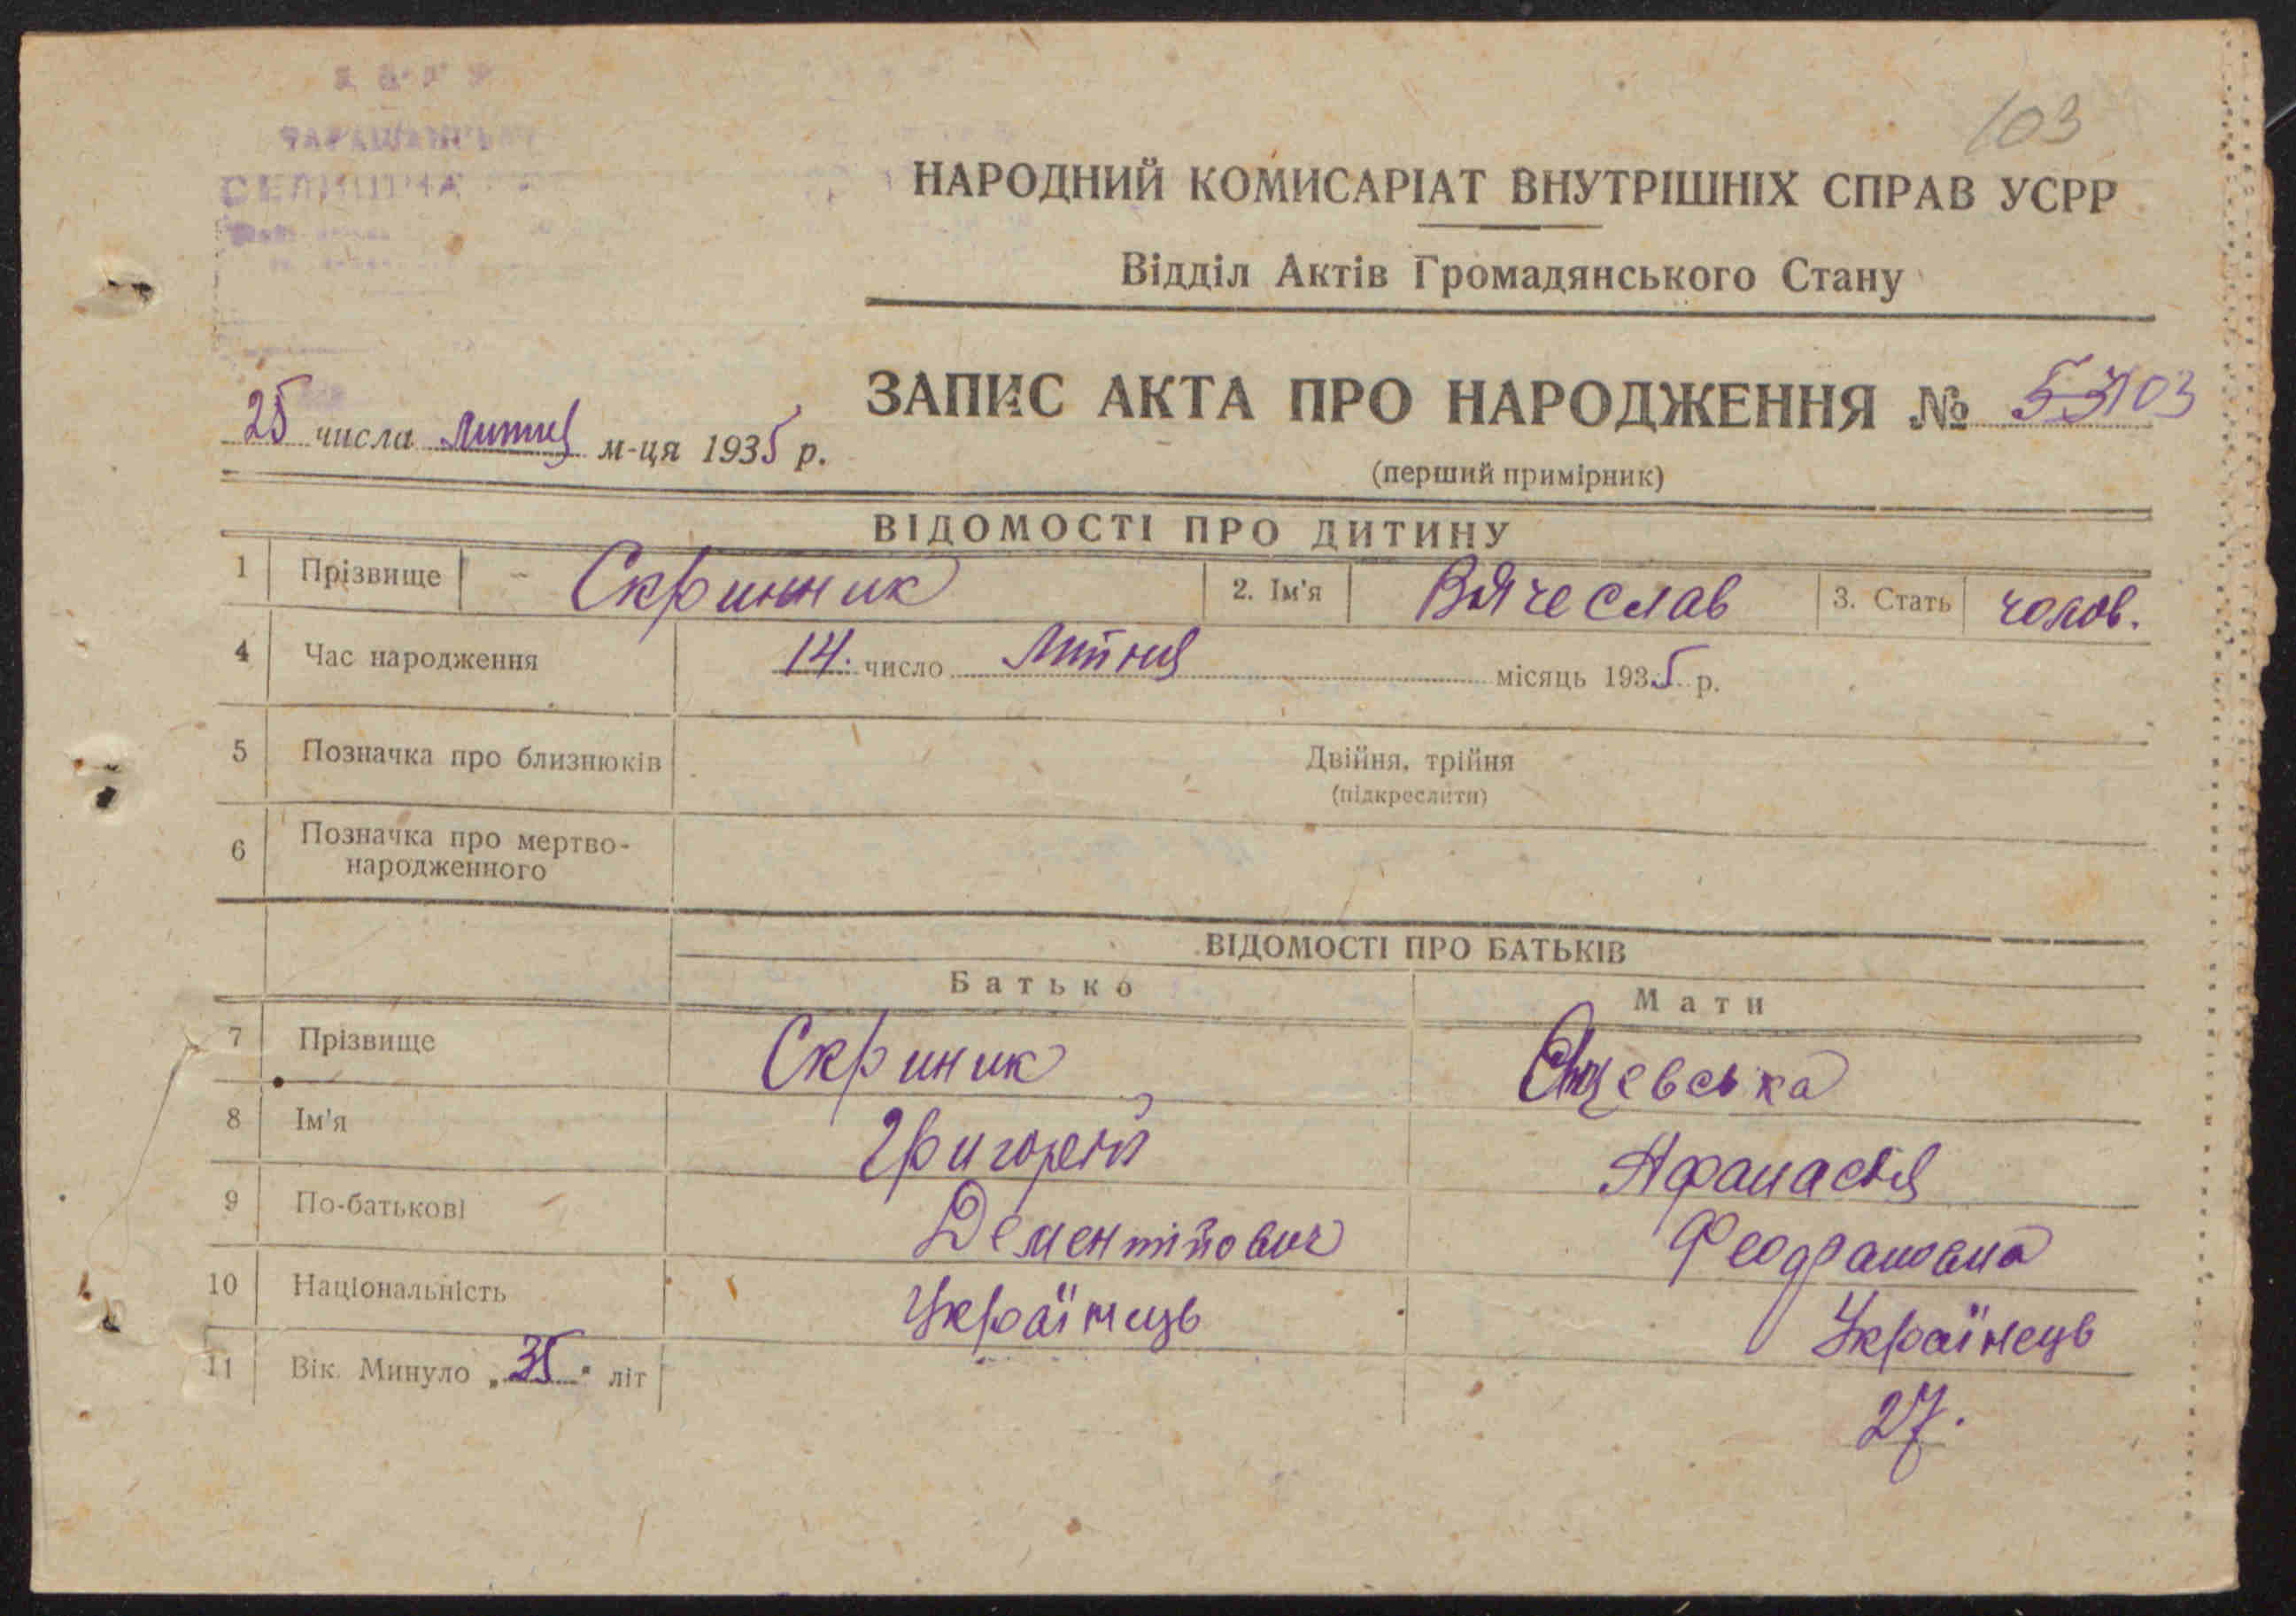 103
НАРОДНИЙ КОМИСАРІАТ ВНУТРІШНІХ СПРАВ УСРР
Відділ Актів Громадянського Стану
ЗАПИС АКТА ПРО НАРОДЖЕННЯ № 53103
25 числа Лютня м-ця 1935 р.
(перший примірник)
ВІДОМОСТІ ПРО ДИТИНУ
1 Прізвище Скринник 2. Ім'я Вячеслав 3. Стать чолов.
4 Час народження 14. число Лютня місяць 1935 р.
5 Позначка про близнюків Двійня, трійня
(підкреслити)
6 Позначка про мертво-
народженного
ВІДОМОСТІ ПРО БАТЬКІВ
Батько Мати
7 Прізвище Скриник
8 Ім'я Григорій Афанасія
9 По-батькові Дементійович
10 Національність Українець Українець
11 Вік. Минуло „35" літ 27.